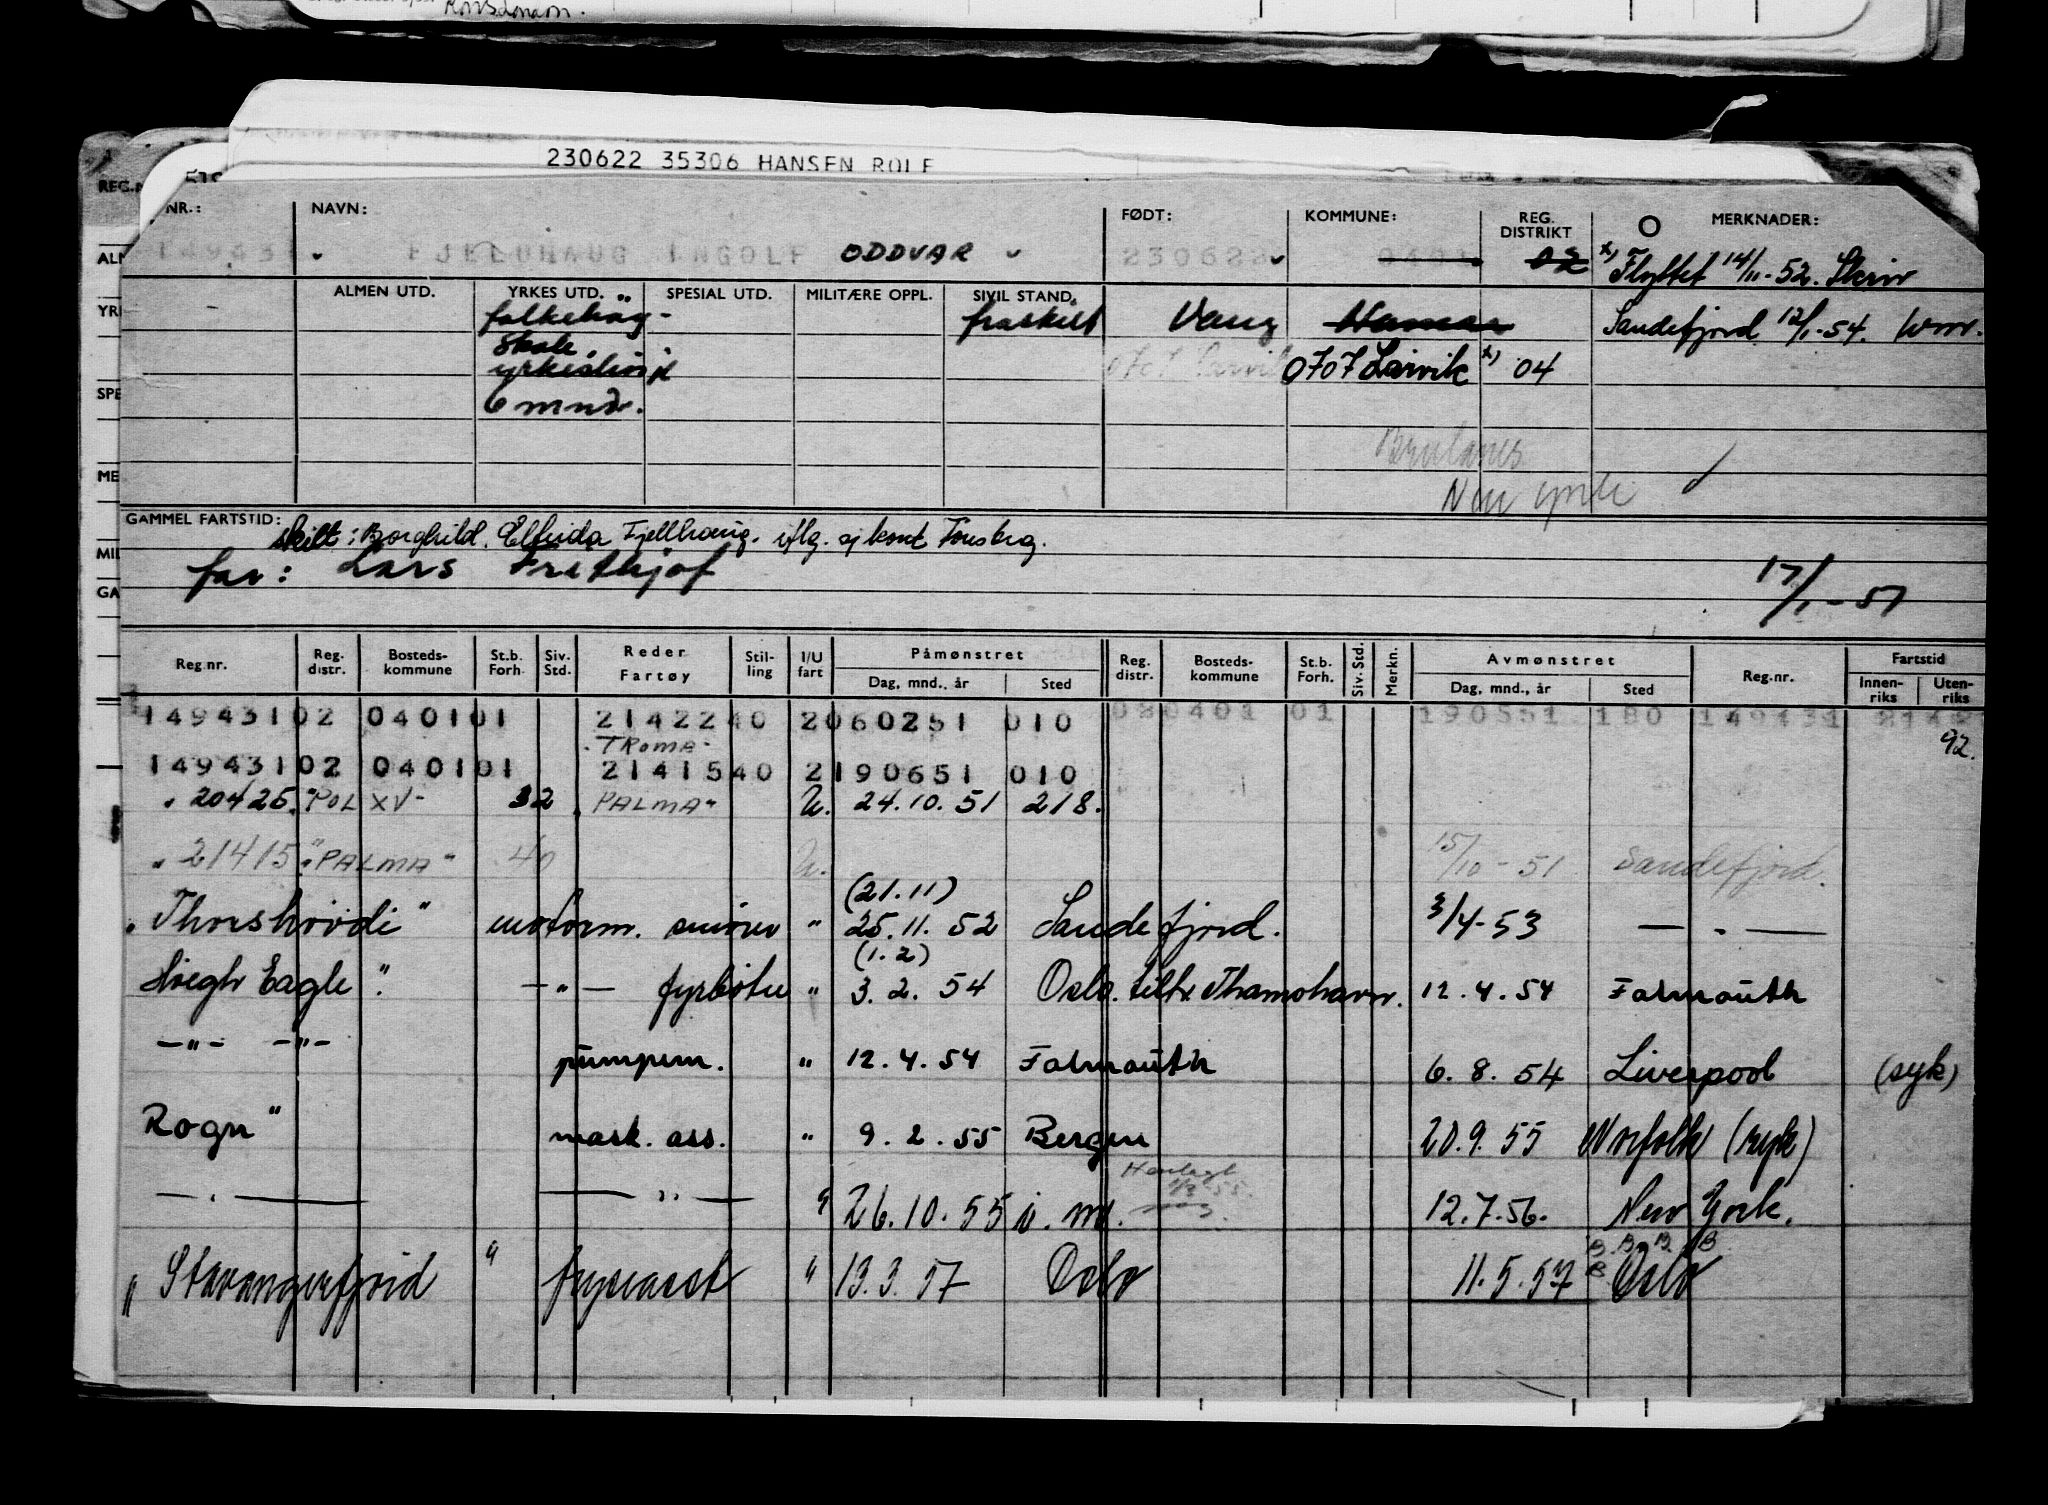 230622 35306 HANSEN ROLF
REG.N
NR.: NAVN: FØDT: KOMMUNE: REG. DISTRIKT MERKNADER:
14943 FJELDHAUG INGOLF ODDVAR 230622 0401 02 x) Flyttet 14/11-52. Skriv
ALMEN UTD. YRKES UTD. SPESIAL UTD. MILITÆRE OPPL. SIVIL STAND.
folkehøg- fraskilt Vang Hamar Sandefjord 12/1-54.
skole,
0707 Larvik x) 04
6 mnd.
GAMMEL FARTSTID:
skilt: Borghild Elfrida Fjellhaug. iflg. sj kont Tønsberg.
far: Lars Frithjof 17/1-57
Reg.nr. Reg. distr. Bosteds- kommune St.b. Forh. Siv. Std. Reder Fartøy Stil- ling I/U fart Påmønstret Reg. distr. Bosteds- kommune St.b. Forh. Siv. Std. Merkn. Avmønstret Reg.nr. Fartstid
Dag, mnd., år Sted Dag, mnd., år Sted Innen- riks Uten- riks
149431 02 0401 01 21422 40 2 060251 010 02 0401 01 190551 180 149431
"TROMA" 92.
149431 02 0401 01 21415 40 2 190651 010
" 20425 "POL XV" 32 "PALMA" U. 24.10.51 218.
" 21415 "PALMA" 40 U. 15/10-51 Sandefjord.
(21.11)
"Thorshövdi" motorm. smører " 25.11.52 Sandefjord. 3/4-53 — " —
(1.2)
Höegh Eagle" — " — fyrbøter " 3.2.54 Oslo. tiltr. Thamshavn. 12.4.54 Falmouth
— " — — " — pumpem. " 12.4.54 Falmouth 6.8.54 Liverpool (syk)
Rogn" mask. ass. " 9.2.55 Bergen 20.9.55 Norfolk (syk)
— " — — " — " 26.10.55 12.7.56. New York.
"Stavangerfjord" fryseasst " 13.3.57 Oslo 11.5.57 Oslo